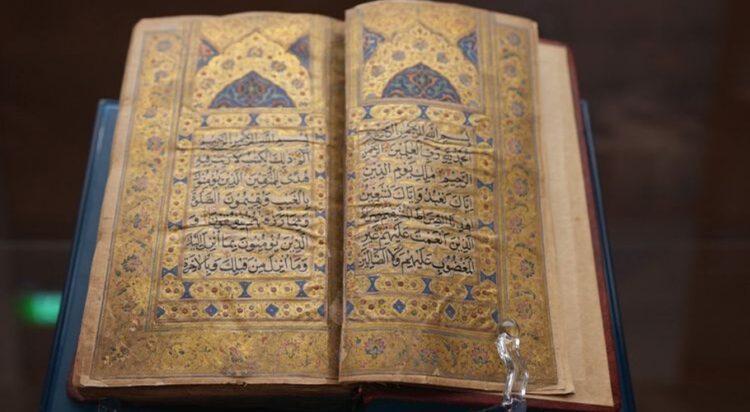 بسم الله الرحمن الرحيم
الحمد لله رب العلمين الرحمن
الرحيم ملك يوم الدين
اياك نعبد واياك نستعين
اهدنا الصراط المستقيم صراط
الذين انعمت عليهم غير
المغضوب عليهم ولا الضالين
بسم الله الرحمن الرحيم
الم ذلك الكتب لا ريب فيه
هدى للمتقين الذين يؤمنون
بالغيب ويقيمون الصلوة
ومما رزقناهم ينفقون و
الذين يؤمنون بما انزل اليك
وما انزل من قبلك وبالاخرة